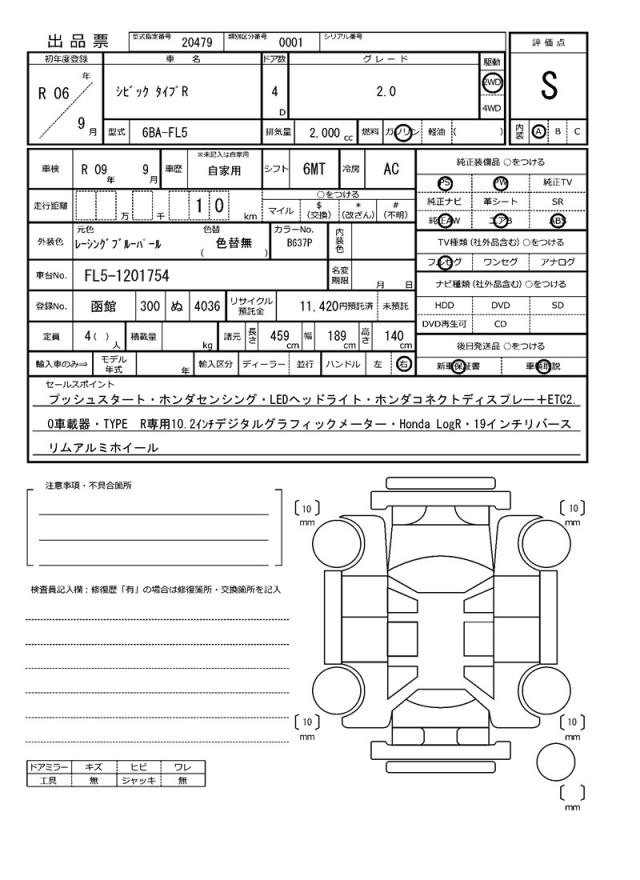 出品票 型式指定番号 20479 類別区分番号 0001 シリアル番号
評価点
S
内装 A B C
初年度登録 車名 ドア数 グレード 駆動
R 06 年 9 月 シビック タイプR 4 D 2.0 2WD 4WD
型式 6BA-FL5 排気量 2,000 cc 燃料 ガソリン 軽油 ( )
車検 R 09 年 9 月 車歴 ※未記入は自家用 自家用 シフト 6MT 冷房 AC
走行距離 万 千 1 0 km ○をつける マイル $ (交換) * (改ざん) # (不明)
外装色 元色 レーシングブルーパール 色替 ( 色替無 ) カラーNo. B637P 内装色
車台No. FL5-1201754 名変期限 月 日
登録No. 函館 300 ぬ 4036 リサイクル預託金 11,420円預託済 未預託
定員 4( )人 積載量 kg 諸元 長さ 459 cm 幅 189 cm 高さ 140 cm
輸入車のみ⇒ モデル年式 年 輸入区分 ディーラー 並行 ハンドル 左 右
純正装備品 ○をつける
PS PW 純正TV
純正ナビ 革シート SR
純正AW エアB ABS
TV種類 (社外品含む) ○をつける
フルセグ ワンセグ アナログ
ナビ種類 (社外品含む) ○をつける
HDD DVD SD
DVD再生可 CD
後日発送品 ○をつける
新車保証書 車輌取説
セールスポイント
プッシュスタート・ホンダセンシング・LEDヘッドライト・ホンダコネクトディスプレー+ETC2.
0車載器・TYPE R専用10.2インチデジタルグラフィックメーター・Honda LogR・19インチリバース
リムアルミホイール
注意事項・不具合箇所
検査員記入欄:修復歴「有」の場合は修復箇所・交換箇所を記入
[ 10 ] mm [ 10 ] mm
[ 10 ] mm [ 10 ] mm
[ ] mm
ドアミラー キズ ヒビ ワレ
工具 無 ジャッキ 無